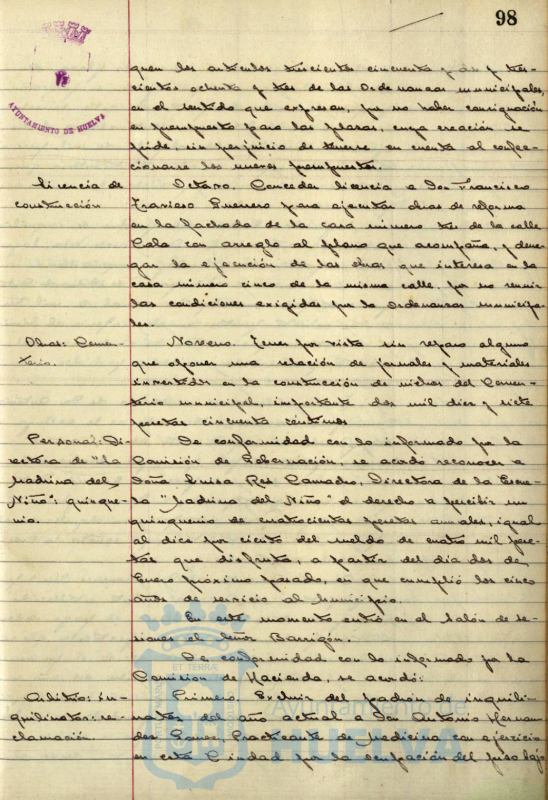 98
AYUNTAMIENTO DE HUELVA
quen los artículos trescientos cincuenta y dos y tres-
cientos ochenta y tres de las Ordenanzas municipales,
en el sentido que expresan, por no haber consignación
en presupuesto para las plazas, cuya creación se
pide, sin perjuicio de tenerse en cuenta al confec-
cionarse los nuevos presupuestos.
Licencia de
construcción
Octavo. Conceder licencia a Don Francisco
Guerrero para ejecutar obras de reforma
en la fachada de la casa número tres de la calle
Cala con arreglo al plano que acompaña, y dene-
gar la ejecución de las obras que interesa en la
casa número cinco de la misma calle, por no reunir
las condiciones exigidas por la Ordenanzas municipa-
les.
Obras: Cemen-
terio.
Noveno. Tener por vista sin reparo alguno
que oponer una relación de jornales y materiales
invertidos en la construcción de nichos del Cemen-
terio municipal, importante dos mil diez y siete
pesetas cincuenta céntimos
Personal: Di-
rectora de "La
Madrina del
Niño": quinque-
nio.
De conformidad con lo informado por la
Comisión de Gobernación, se acordó reconocer a
Doña Luisa Rey Camacho, Directora de la Escue-
la "Madrina del Niño" el derecho a percibir un
quinquenio de cuatrocientas pesetas anuales, igual
al diez por ciento del sueldo de cuatro mil pese-
tas que disfruta, a partir del día dos de
Enero próximo pasado, en que cumplió los cinco
años de servicio al Municipio.
En este momento entró en el Salón de se-
siones el Señor Barrigón.
De conformidad con lo informado por la
Comisión de Hacienda, se acordó:
Arbitrio: in-
quilinatos: re-
clamación.
Primero. Excluir del padrón de inquili-
natos del año actual a Don Antonio Hernan-
dez Gomez, Practicante de Medicina con ejercicio
en esta Ciudad por la ocupación del piso bajo
Ayuntamiento de
HUELVA